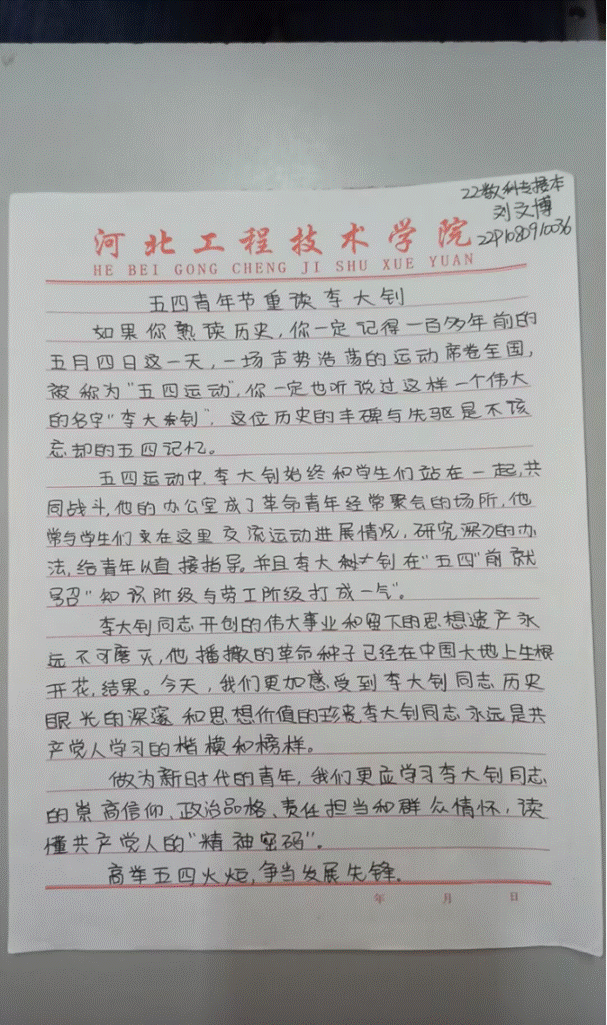 22数科专接本
刘文博
2291080910036
河北工程技术学院
HE BEI GONG CHENG JI SHU XUE YUAN
五四青年节重读李大钊
如果你熟读历史，你一定记得一百多年前的
五月四日这一天，一场声势浩荡的运动席卷全国，
被称为"五四运动"，你一定也听说过这样一个伟大
的名字"李大钊"，这位历史的丰碑与先驱是不该
忘却的五四记忆。
五四运动中，李大钊始终和学生们站在一起，共
同战斗，他的办公室成了革命青年经常聚会的场所，他
常与学生们在这里交流运动进展情况，研究深刀的办
法，给青年以直接指导。并且李大钊在"五四"前就
号召"知识阶级与劳工阶级打成一气"。
李大钊同志开创的伟大事业和留下的思想遗产永
远不可磨灭，他播撒的革命种子已经在中国大地上生根
开花，结果。今天，我们更加感受到李大钊同志历史
眼光的深邃和思想价值的珍贵，李大钊同志永远是共
产党人学习的楷模和榜样。
做为新时代的青年，我们更应学习李大钊同志
的崇高信仰、政治品格、责任担当和群众情怀，读
懂共产党人的"精神密码"。
高举五四火炬，争当发展先锋。
年 月 日